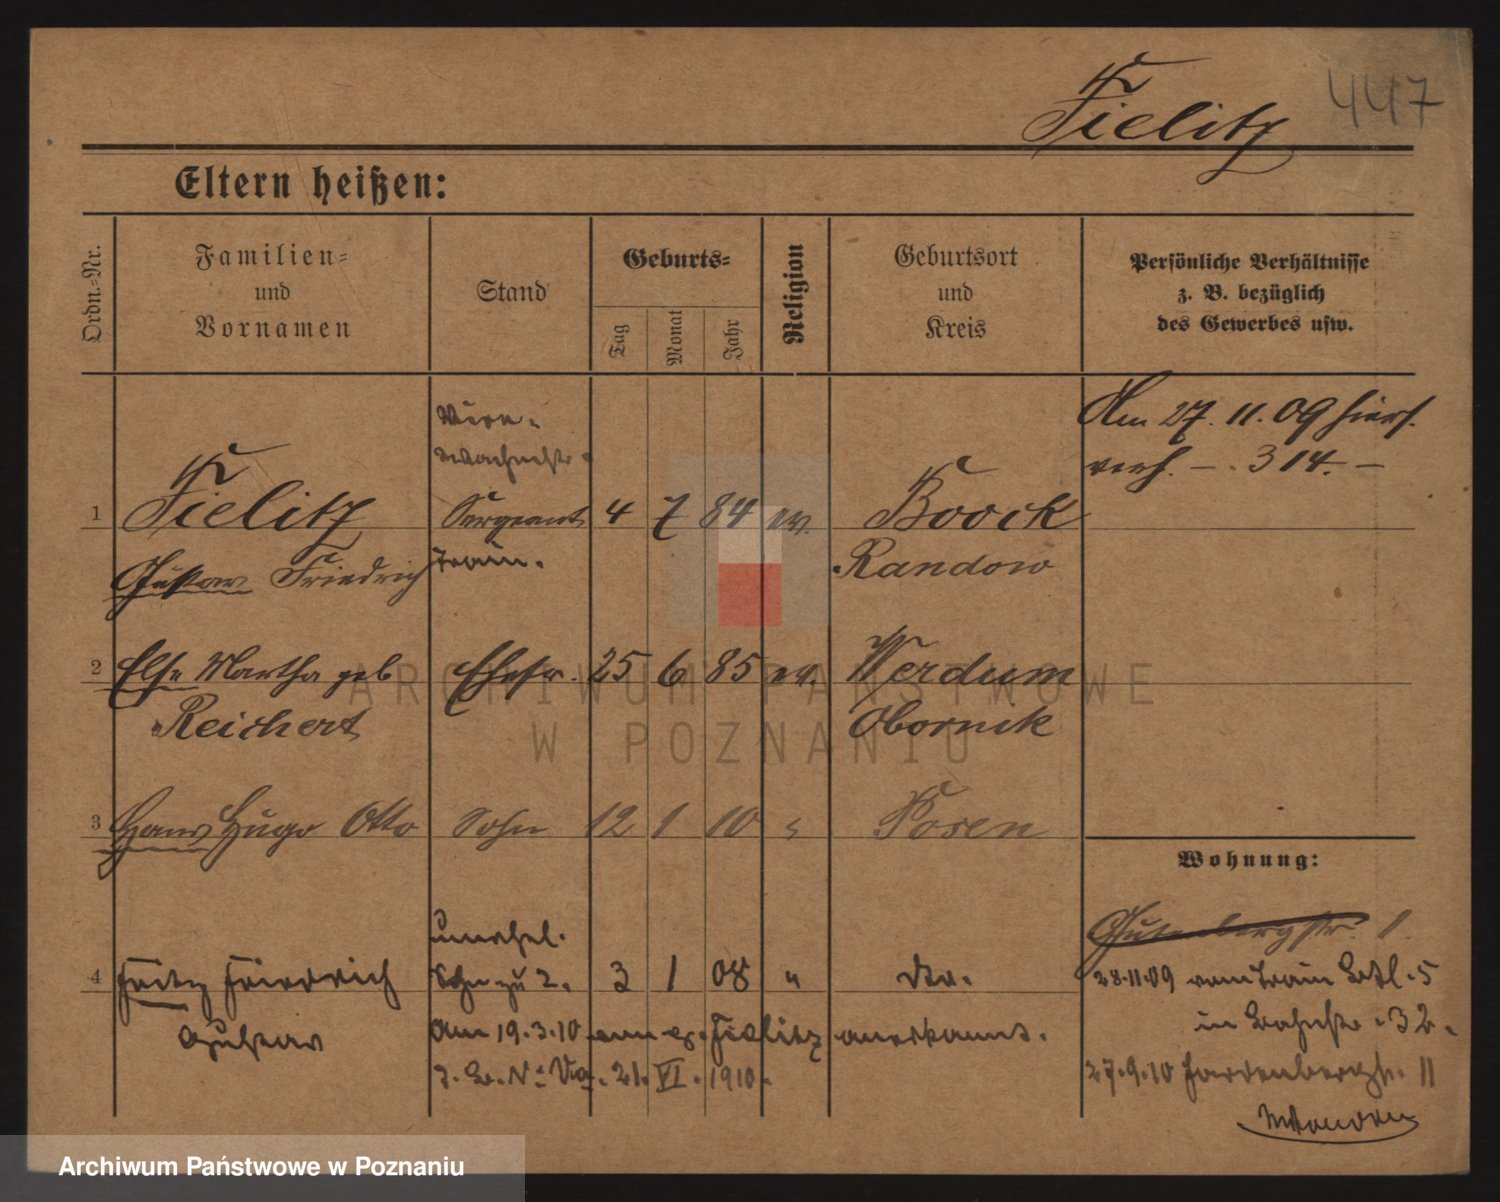 447
Fielitz
Eltern heißen:
Ordn.-Nr.
Familien-
und
Vornamen
Stand
Geburts-
Tag
Monat
Jahr
Religion
Geburtsort
und
Kreis
Persönliche Verhältnisse
z. B. bezüglich
des Gewerbes usw.
Am 27. 11. 09 hiers.
verh. – 314. –
1 Fielitz Sergeant 4 7 84 ev. Boock
Gustav Friedrich Train. Randow
2 Else Martha geb Ehefr. 25 6 85 ev. Werdum
Reichert Obornik
3 Hans Hugo Otto Sohn 12 1 10 " Posen
Wohnung:
Gutenbergstr. 1
unehel.
4 Fritz Friedrich Sohn zu 2. 3 1 08 " do.
28.11.09 vom Train Batl. 5
Gustav
Am 19.3.10 Fielitz anerkannt.
in 32.
21. VI. 1910.
27.9.10 Hardenbergstr. 11
ARCHIWUM PAŃSTWOWE
W POZNANIU
Archiwum Państwowe w Poznaniu